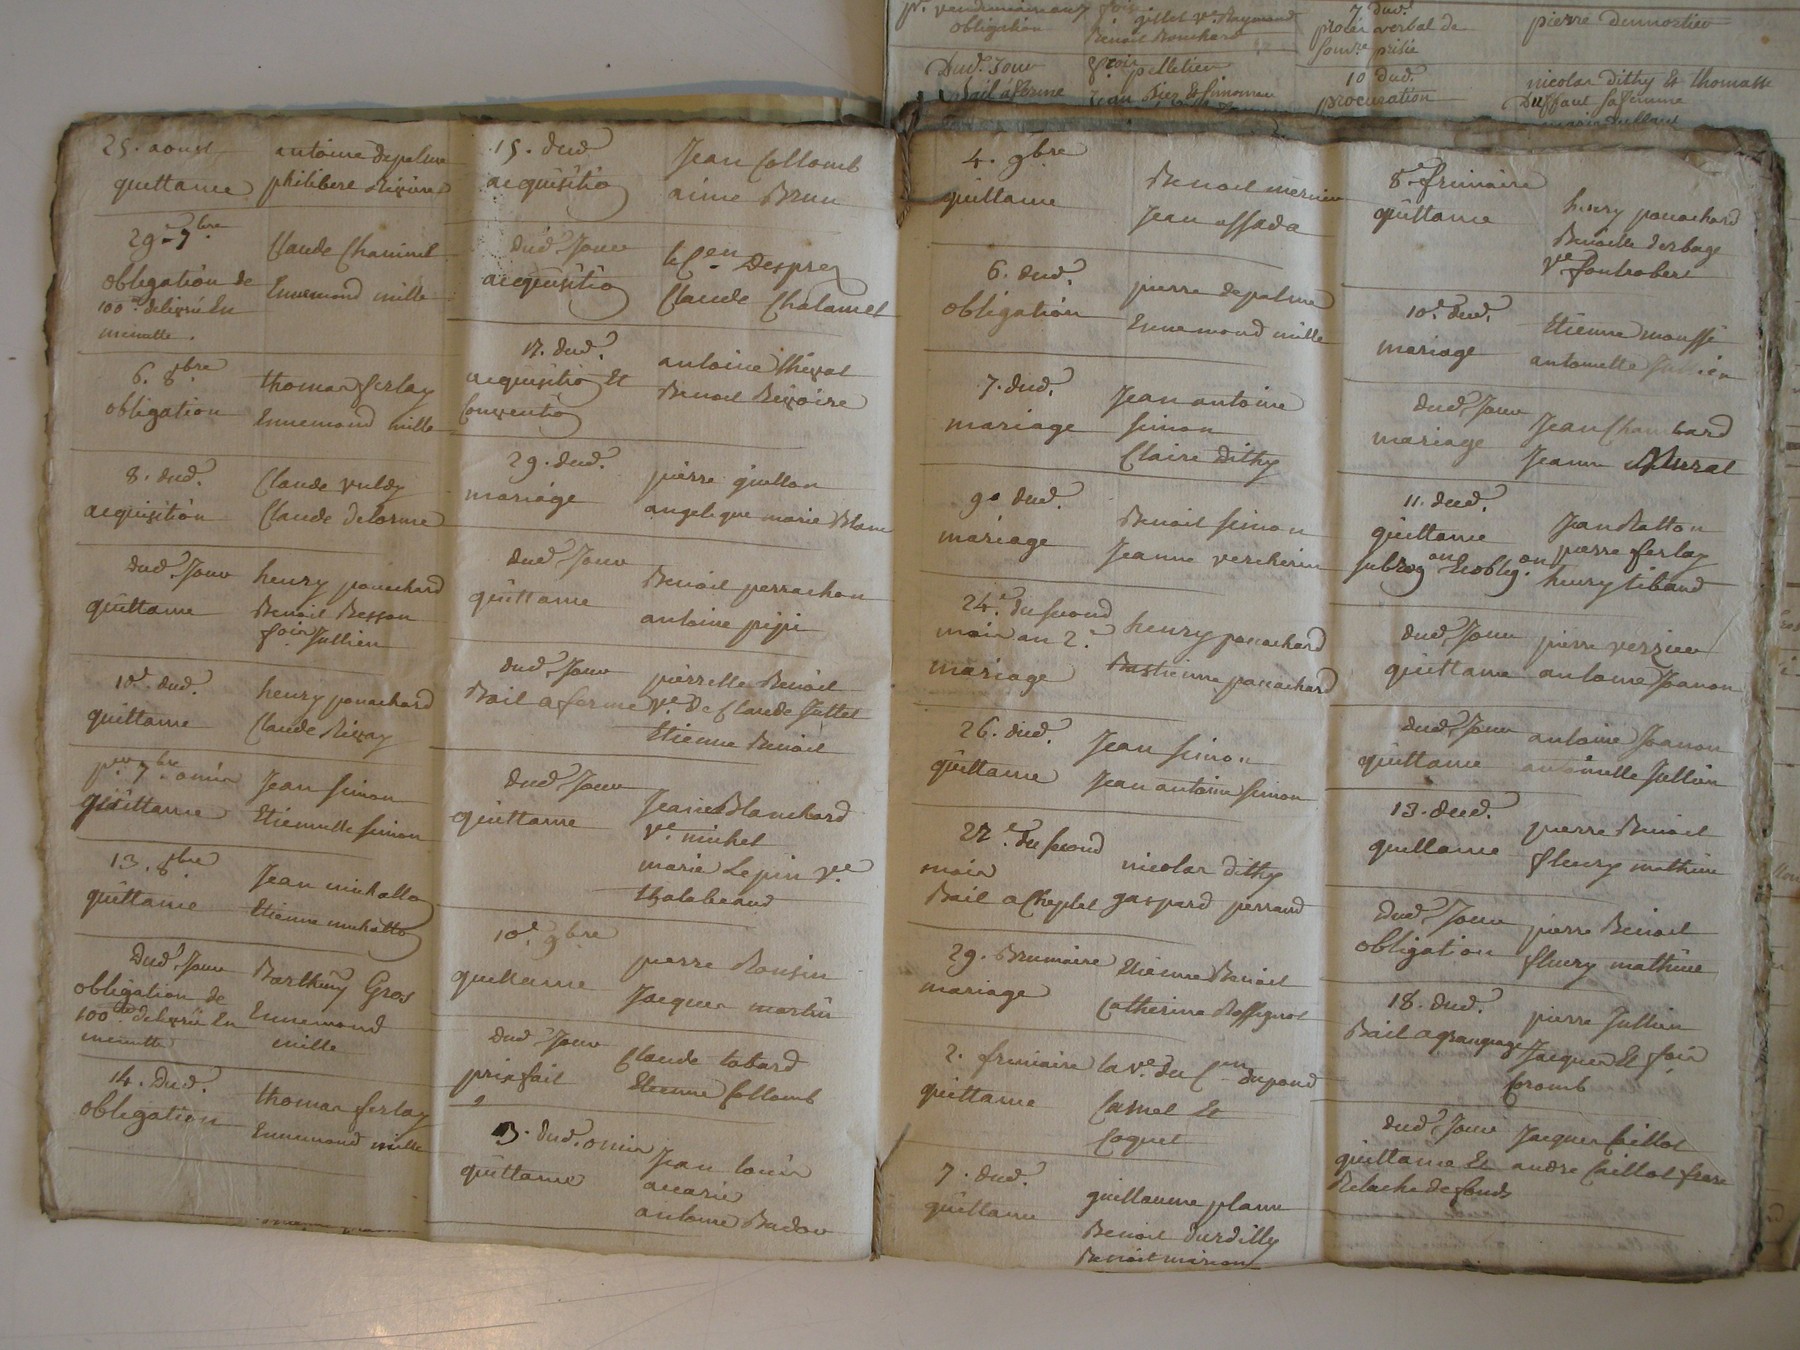 obligation
Benoit Bouchard
7 dud.
procès verbal de
pierre dumortier
Dud. Jour
pelletier
Bail à ferme
10 dud.
procuration
nicolas dithy et thomasse
Duffaut sa femme
25. aoust
quittance
antoine depalme
philibert
29 7bre
obligation de
100
minutte.
Claude Chaminel
Ennemond mille
6. 8bre
obligation
thomas ferlay
Ennemond mille
8. dud.
acquisition
Claude
Claude delorme
dud. Jour
quittance
henry ponachard
Benoit Besson
Jullien
10e. dud.
quittance
henry ponachard
Claude Rivay
7bre omis
quittance
Jean simon
Etiennette simon
13. 8bre
quittance
Jean
Etienne
Dud. Jour
obligation de
100
minutte
Barthmy Gros
Ennemond
mille
14. Dud.
obligation
thomas ferlay
Ennemond mille
15. dud
acquisitio
Jean Collomb
aime Brun
dud. Jour
acquisitio
le Cen Desprez
Claude Chalamel
17. dud.
acquisitio et
Conventio
antoine thevol
Benoit Revoire
29. dud.
mariage
pierre guillon
angelique marie Blanc
dud Jour
quittance
Benoit perrachon
antoine
dud Jour
Bail a ferme
pierrette Benoit
ve. de Claude Juttet
Etienne Benoit
dud Jour
quittance
Jeanne Blanchard
Ve. michel
marie Lepin ve.
thalebeaud
10e. 9bre
quittance
pierre Ronsin
Jacques martin
dud Jour
prixfait
Claude tabard
Etienne Collomb
13. dud. omis
quittance
Jean louis
accarie
antoine Badou
4. 9bre
quittance
Benoit mernier
Jean assada
6. dud.
obligation
pierre depalme
Ennemond mille
7. dud.
mariage
Jean antoine
simon
Claire dithy
9e dud.
mariage
Benoit simon
Jeanne vercherin
24e. du second
mois an 2e.
mariage
henry ponachard
Bastienne ponachard
26. dud.
quittance
Jean simon
Jean antoine simon
27e. du second
mois
Bail a Cheptel
nicolas dithy
gaspard perraud
29. Brumaire
mariage
Etienne Benoit
Catherine Rossignol
2. frimaire
quittance
la ve. du Cen dupond
Carnel et
Coquet
7. dud.
quittance
guillaume plasse
Benoit durdilly
Benoit marion
8e frimaire
quittance
henry ponachard
Benoitte desbage
ve fontrobert
10e. dud.
mariage
Etienne moussé
antoinette Jullien
dud. Jour
mariage
Jean Chambard
Jeanne
11. dud.
quittance
subrogon et obligon
Jean Ratton
pierre ferlay
henry tibaud
dud. Jour
quittance
pierre verzier
antoine Joanon
dud. Jour
quittance
antoine Joanon
antoinette Jullien
13. dud.
quittance
pierre Benoit
fleury mathieu
dud. Jour
obligation
pierre Benoit
fleury mathieu
18. dud.
Bail a grangeage
pierre Jullien
Jacques et fois
Coromb
dud. Jour
quittance et
Relache de fonds
Jacques Caillot
andre Caillot frere